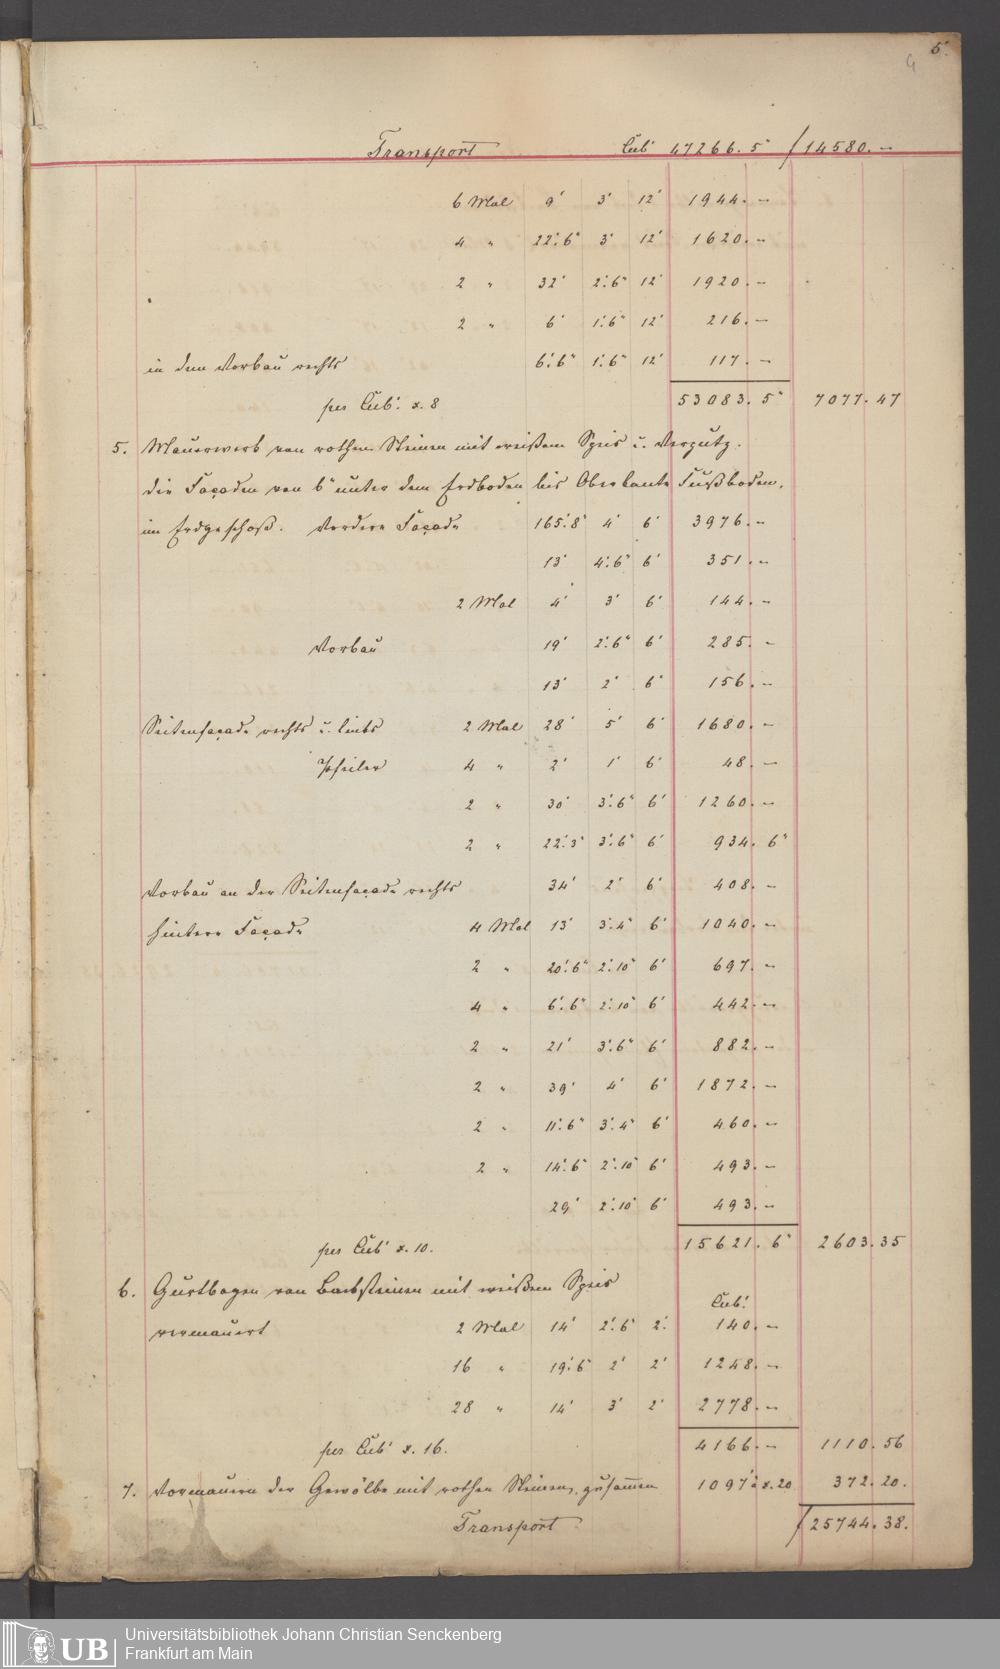 5.
Transport Cub' 47266. 5" f 14580. –
6 Mal 9' 3' 12' 1944. –
4 " 22'. 6" 3' 12' 1620. –
2 " 32' 2'. 6" 12' 1920. –
2 " 6' 1'. 6" 12' 216. –
in dem Vorbau rechts 6'. 6" 1'. 6" 12' 117. –
per Cub'. x. 8 53083. 5" 7077. 47
5. Mauerwerk von rothen Steinen mit weißem Speis u. Verputz.
die Façaden von 6" unter dem Erdboden bis Oberkante Fußboden,
im Erdgeschoß. Vordere Façade 165'. 8" 4' 6' 3976. –
13' 4'. 6" 6' 351. –
2 Mal 4' 3' 6' 144. –
Vorbau 19' 2'. 6" 6' 285. –
13' 2' 6' 156. –
Seitenfaçade rechts u. links 2 Mal 28' 5' 6' 1680. –
Pfeiler 4 " 2' 1' 6' 48. –
2 " 30' 3'. 6" 6' 1260. –
2 " 22'. 3" 3'. 6" 6' 934. 6"
Vorbau an der Seitenfaçade rechts 34' 2' 6' 408. –
hintere Façade 4 Mal 13' 3'. 4" 6' 1040. –
2 " 20'. 6" 2'. 10" 6' 697. –
4 " 6'. 6" 2'. 10" 6' 442. –
2 " 21' 3'. 6" 6' 882. –
2 " 39' 4' 6' 1872. –
2 " 11'. 6" 3'. 4" 6' 460. –
2 " 14'. 6" 2'. 10" 6' 493. –
29' 2'. 10" 6' 493. –
per Cub' x. 10. 15621. 6" 2603. 35
6. Gurtbogen von Backsteinen mit weißem Speis
Cub'.
vermauert 2 Mal 14' 2'. 6" 2'. 140. –
16 " 19'. 6" 2' 2' 1248. –
28 " 14' 3' 2' 2778. –
per Cub' x. 16. 4166. – 1110. 56
7. Vormauern der Gewölbe mit rothen Steinen, zusam̅en 1097' à x. 20 372. 20.
Transport f 25744. 38.
UB Universitätsbibliothek Johann Christian Senckenberg
Frankfurt am Main